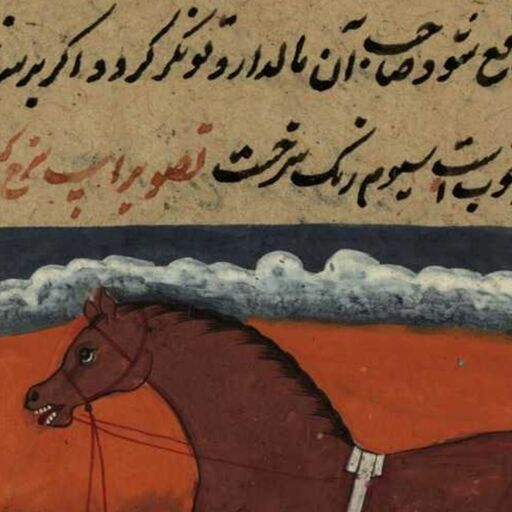 شود صاحب آن مالدار و تونکر کردد اکر بر
خوب است سیوم رنک سرخست تصویر اسپ سرخ